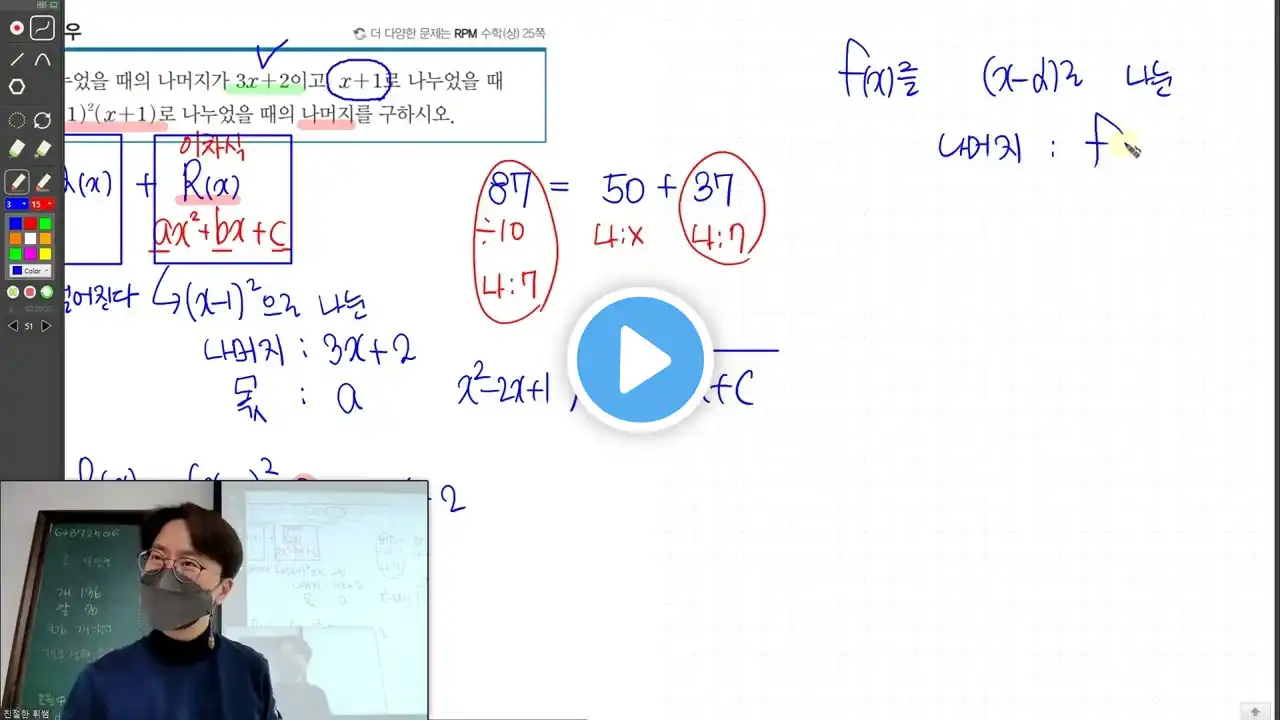 우
더 다양한 문제는 RPM 수학(상) 25쪽
누었을 때의 나머지가 3x+2이고 x+1로 나누었을 때
1)²(x+1)로 나누었을 때의 나머지를 구하시오.
이차식
(x) + R(x)
ax²+bx+c
87 = 50 + 37
÷10 나:x 나:7
나:7
떨어진다 ↳(x-1)²으로 나눈
나머지 : 3x+2
몫 : a
x²-2x+1
x+c
2
f(x)를 (x-α)로 나눈
나머지 : f
3 15
Color
51
친절한 휘쌤